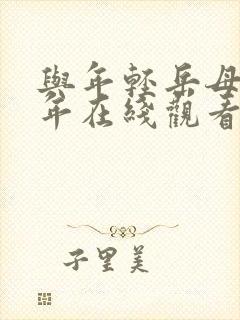 與年輕岳母
年在綫觀看
子里美